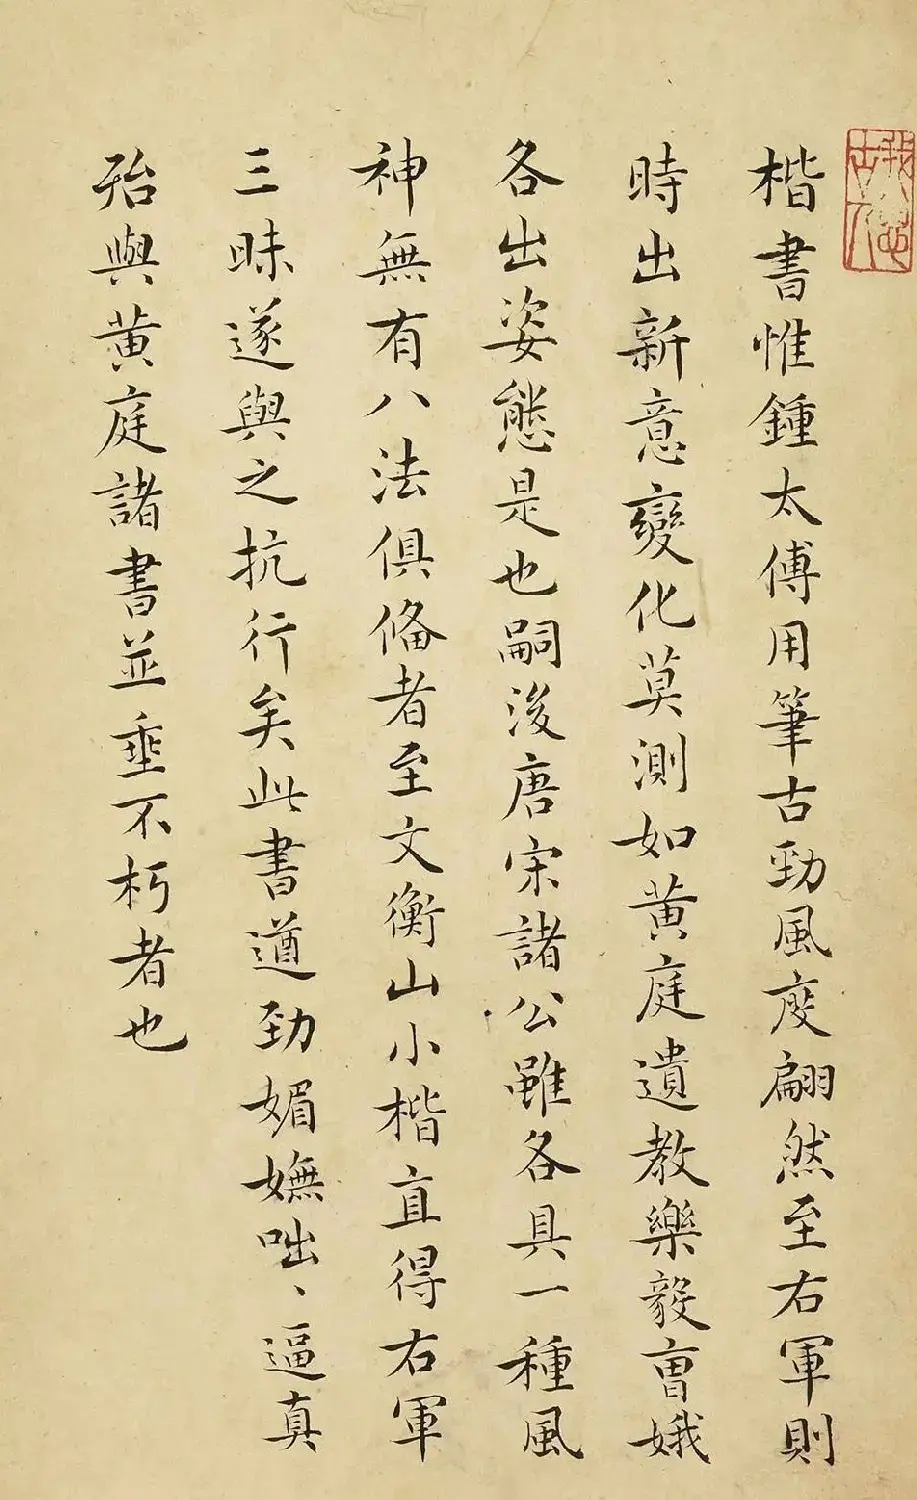 楷書惟鍾太傅用筆古勁風度翩然至右軍則
時出新意變化莫測如黄庭遺教樂毅曺娥
各出姿態是也嗣後唐宋諸公雖各具一種風
神無有八法俱俻者至文衡山小楷直得右軍
三昧遂與之抗行矣此書遒勁媚嫵咄、逼真
殆與黄庭諸書並垂不朽者也